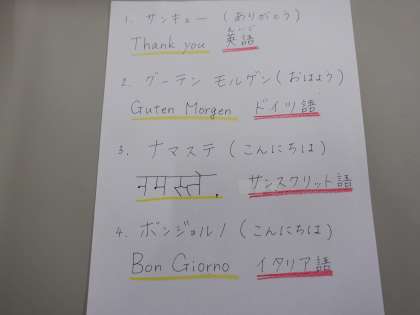 1. サンキュー (ありがとう)
Thank you 英語
えいご
2. グーテン モルゲン (おはよう)
Guten Morgen ドイツ語
3. ナマステ (こんにちは)
नमस्ते. サンスクリット語
4. ボンジョルノ (こんにちは)
Bon Giorno イタリア語